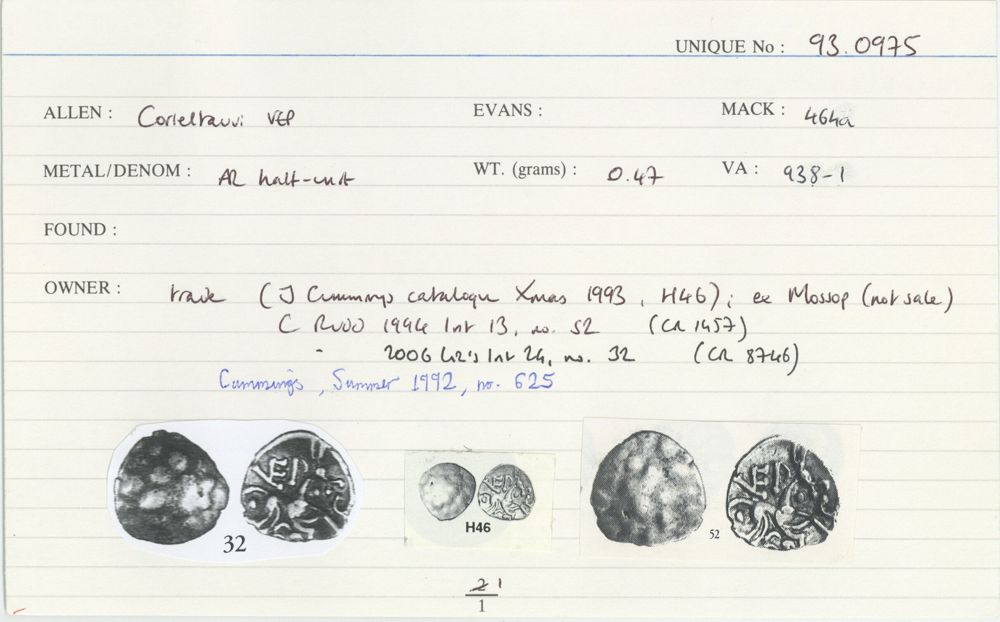 UNIQUE No : 93.0975
ALLEN : Corieltauvi VEP EVANS : MACK : 464a
METAL/DENOM : AR half-unit WT. (grams) : 0.47 VA : 938-1
FOUND :
OWNER : trade (J Cummings catalogue Xmas 1993, H46); ex Mossop (not sale)
C RUDD 1994 list 13, no. 52 (CR 1457)
- 2006 list 24, no. 32 (CR 8746)
Cummings, Summer 1992, no. 625
VEP VEP VEP
32 H46 52
2 1
1